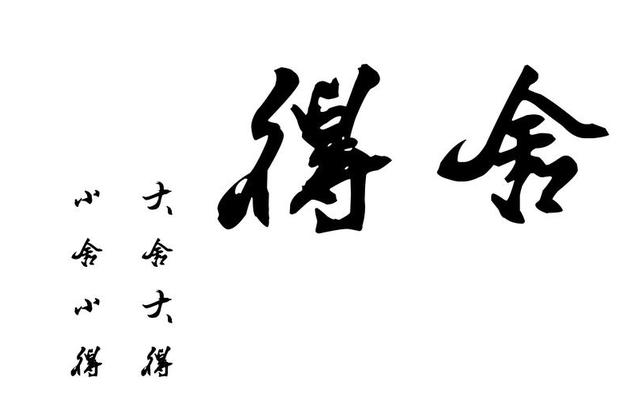 舍得
大舍大得
小舍小得